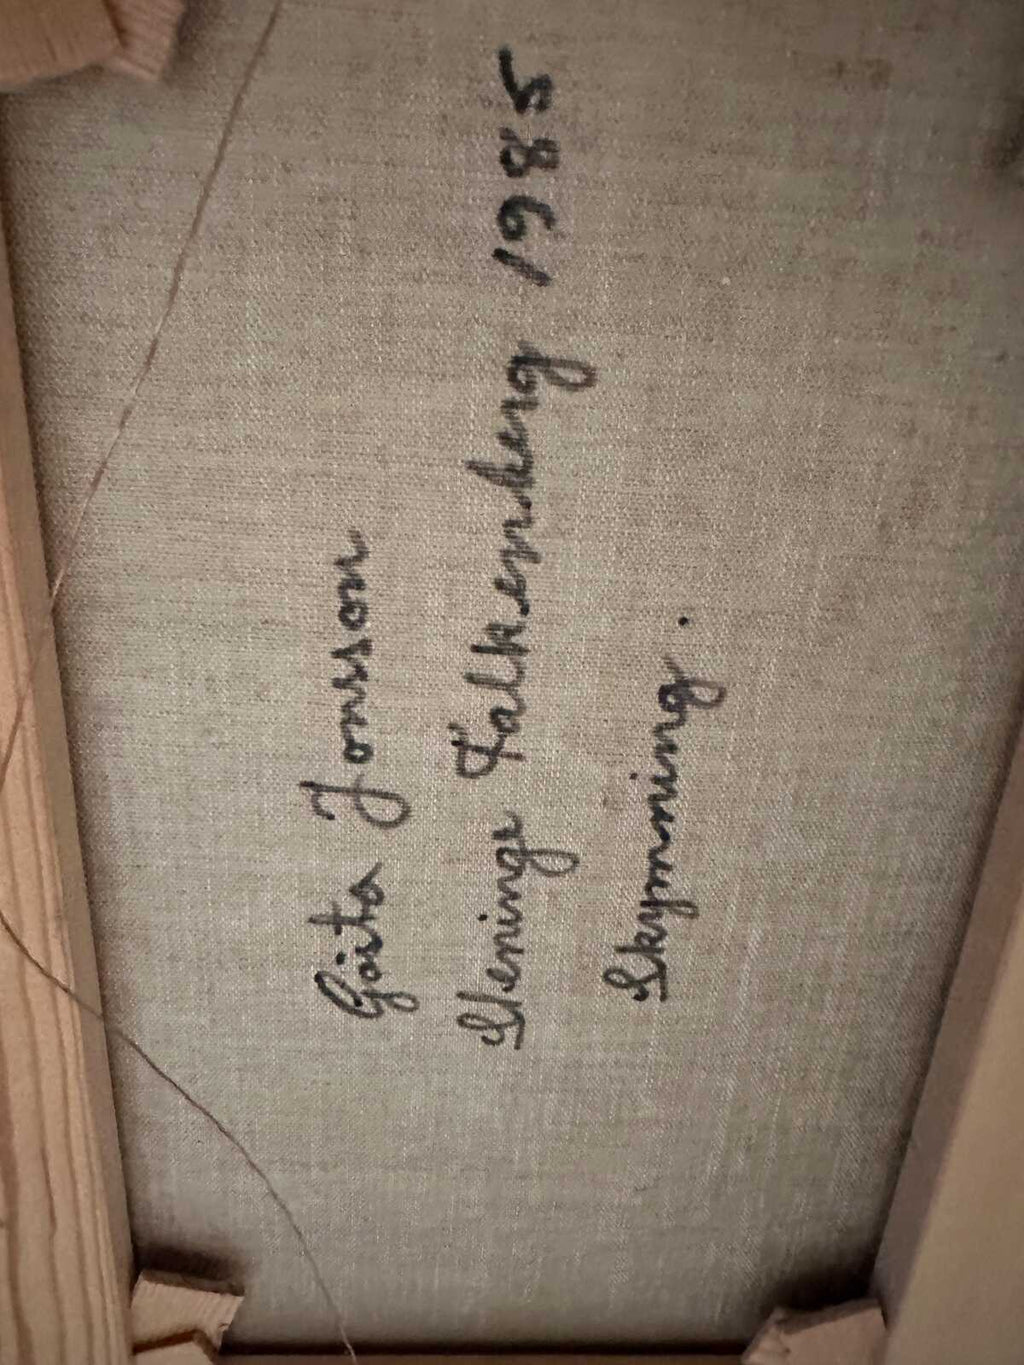 Gösta Jonsson
Steninge Falkenberg 1985
Skymning.